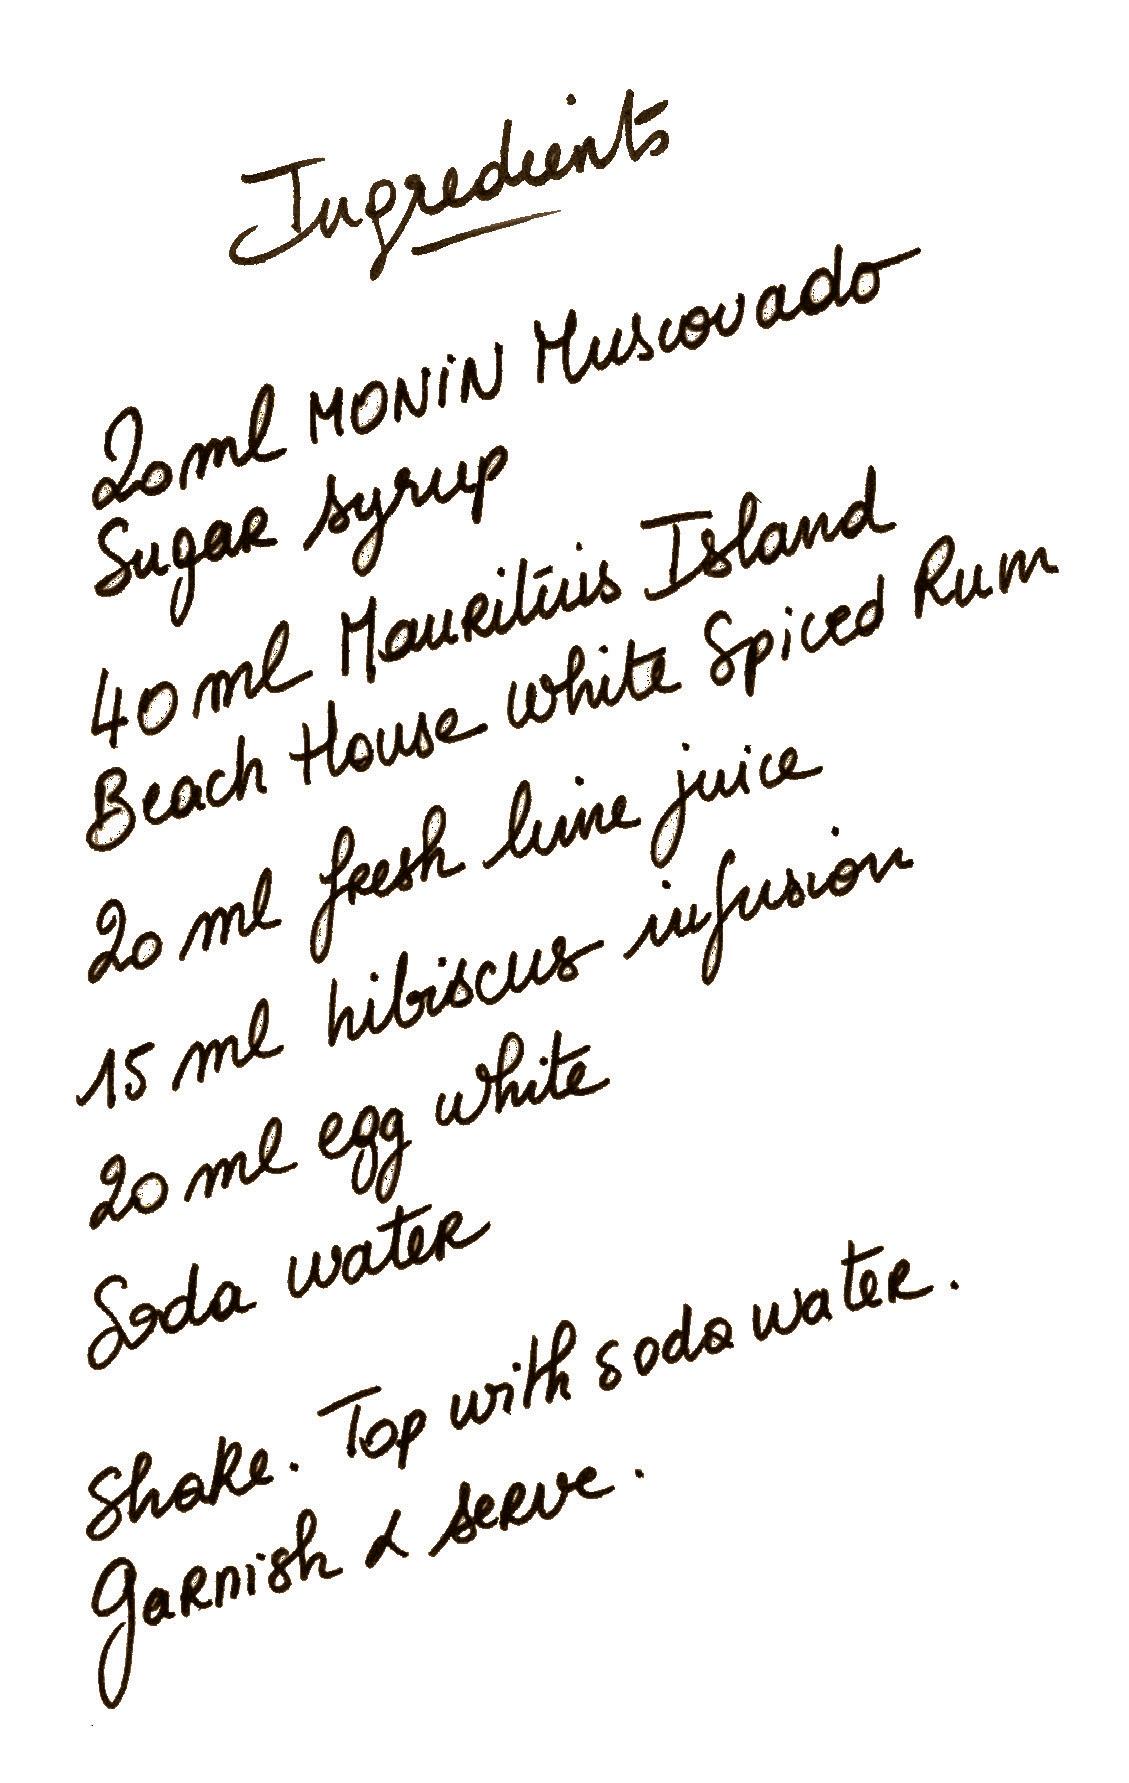 Ingredients
20ml MONIN Muscovado
Sugar syrup
40 ml Mauritius Island
Beach House white Spiced Rum
20 ml fresh lime juice
15 ml hibiscus infusion
20 ml egg white
Soda water
Shake. Top with soda water.
Garnish & serve.